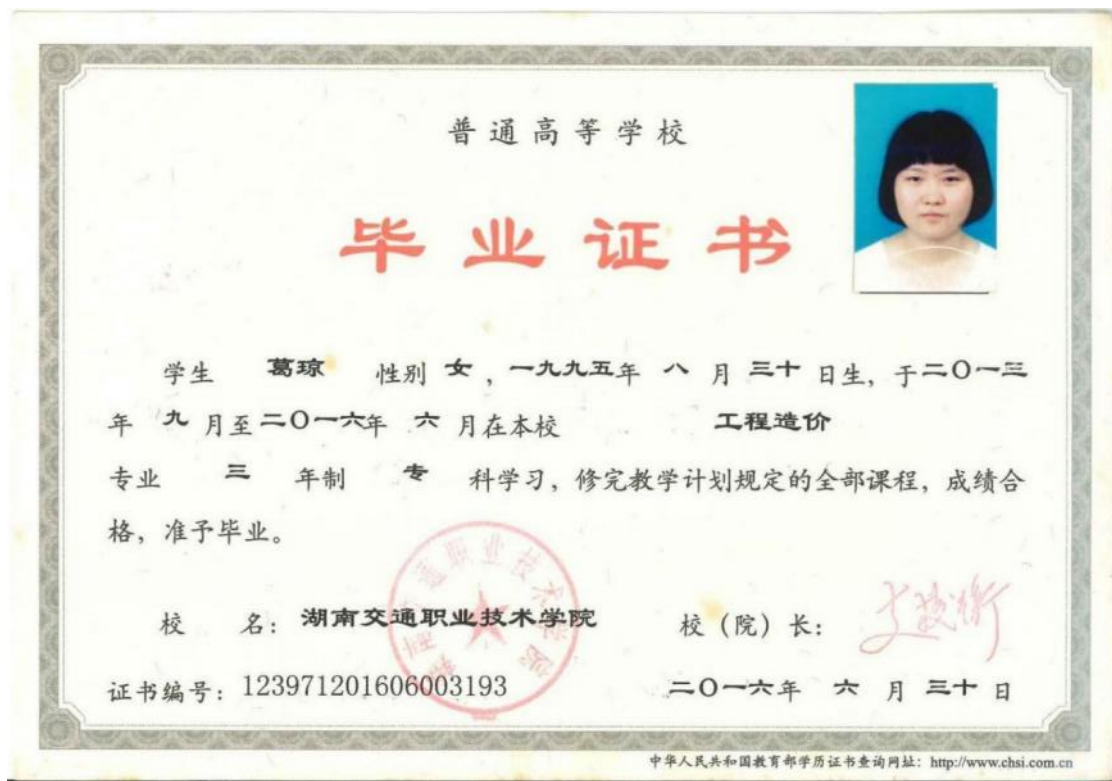 普通高等学校
毕业证书
学生 葛琼 性别 女 ，一九九五年 八 月 三十 日生，于二〇一三
年 九 月至二〇一六年 六 月在本校 工程造价
专业 三 年制 专 科学习，修完教学计划规定的全部课程，成绩合
格，准予毕业。
校 名：湖南交通职业技术学院 校（院）长：
证书编号：123971201606003193 二〇一六年 六 月 三十 日
湖南交通职业技术学院
中华人民共和国教育部学历证书查询网址：http://www.chsi.com.cn